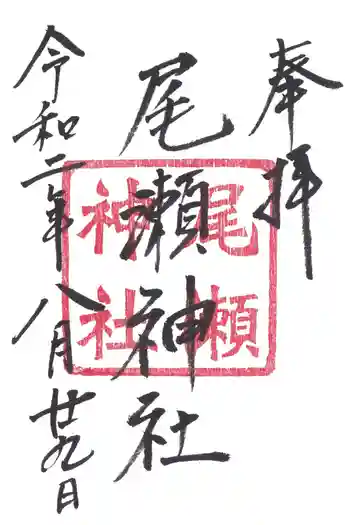 奉拝
尾瀬神社
令和二年八月廿九日
尾瀬
神社